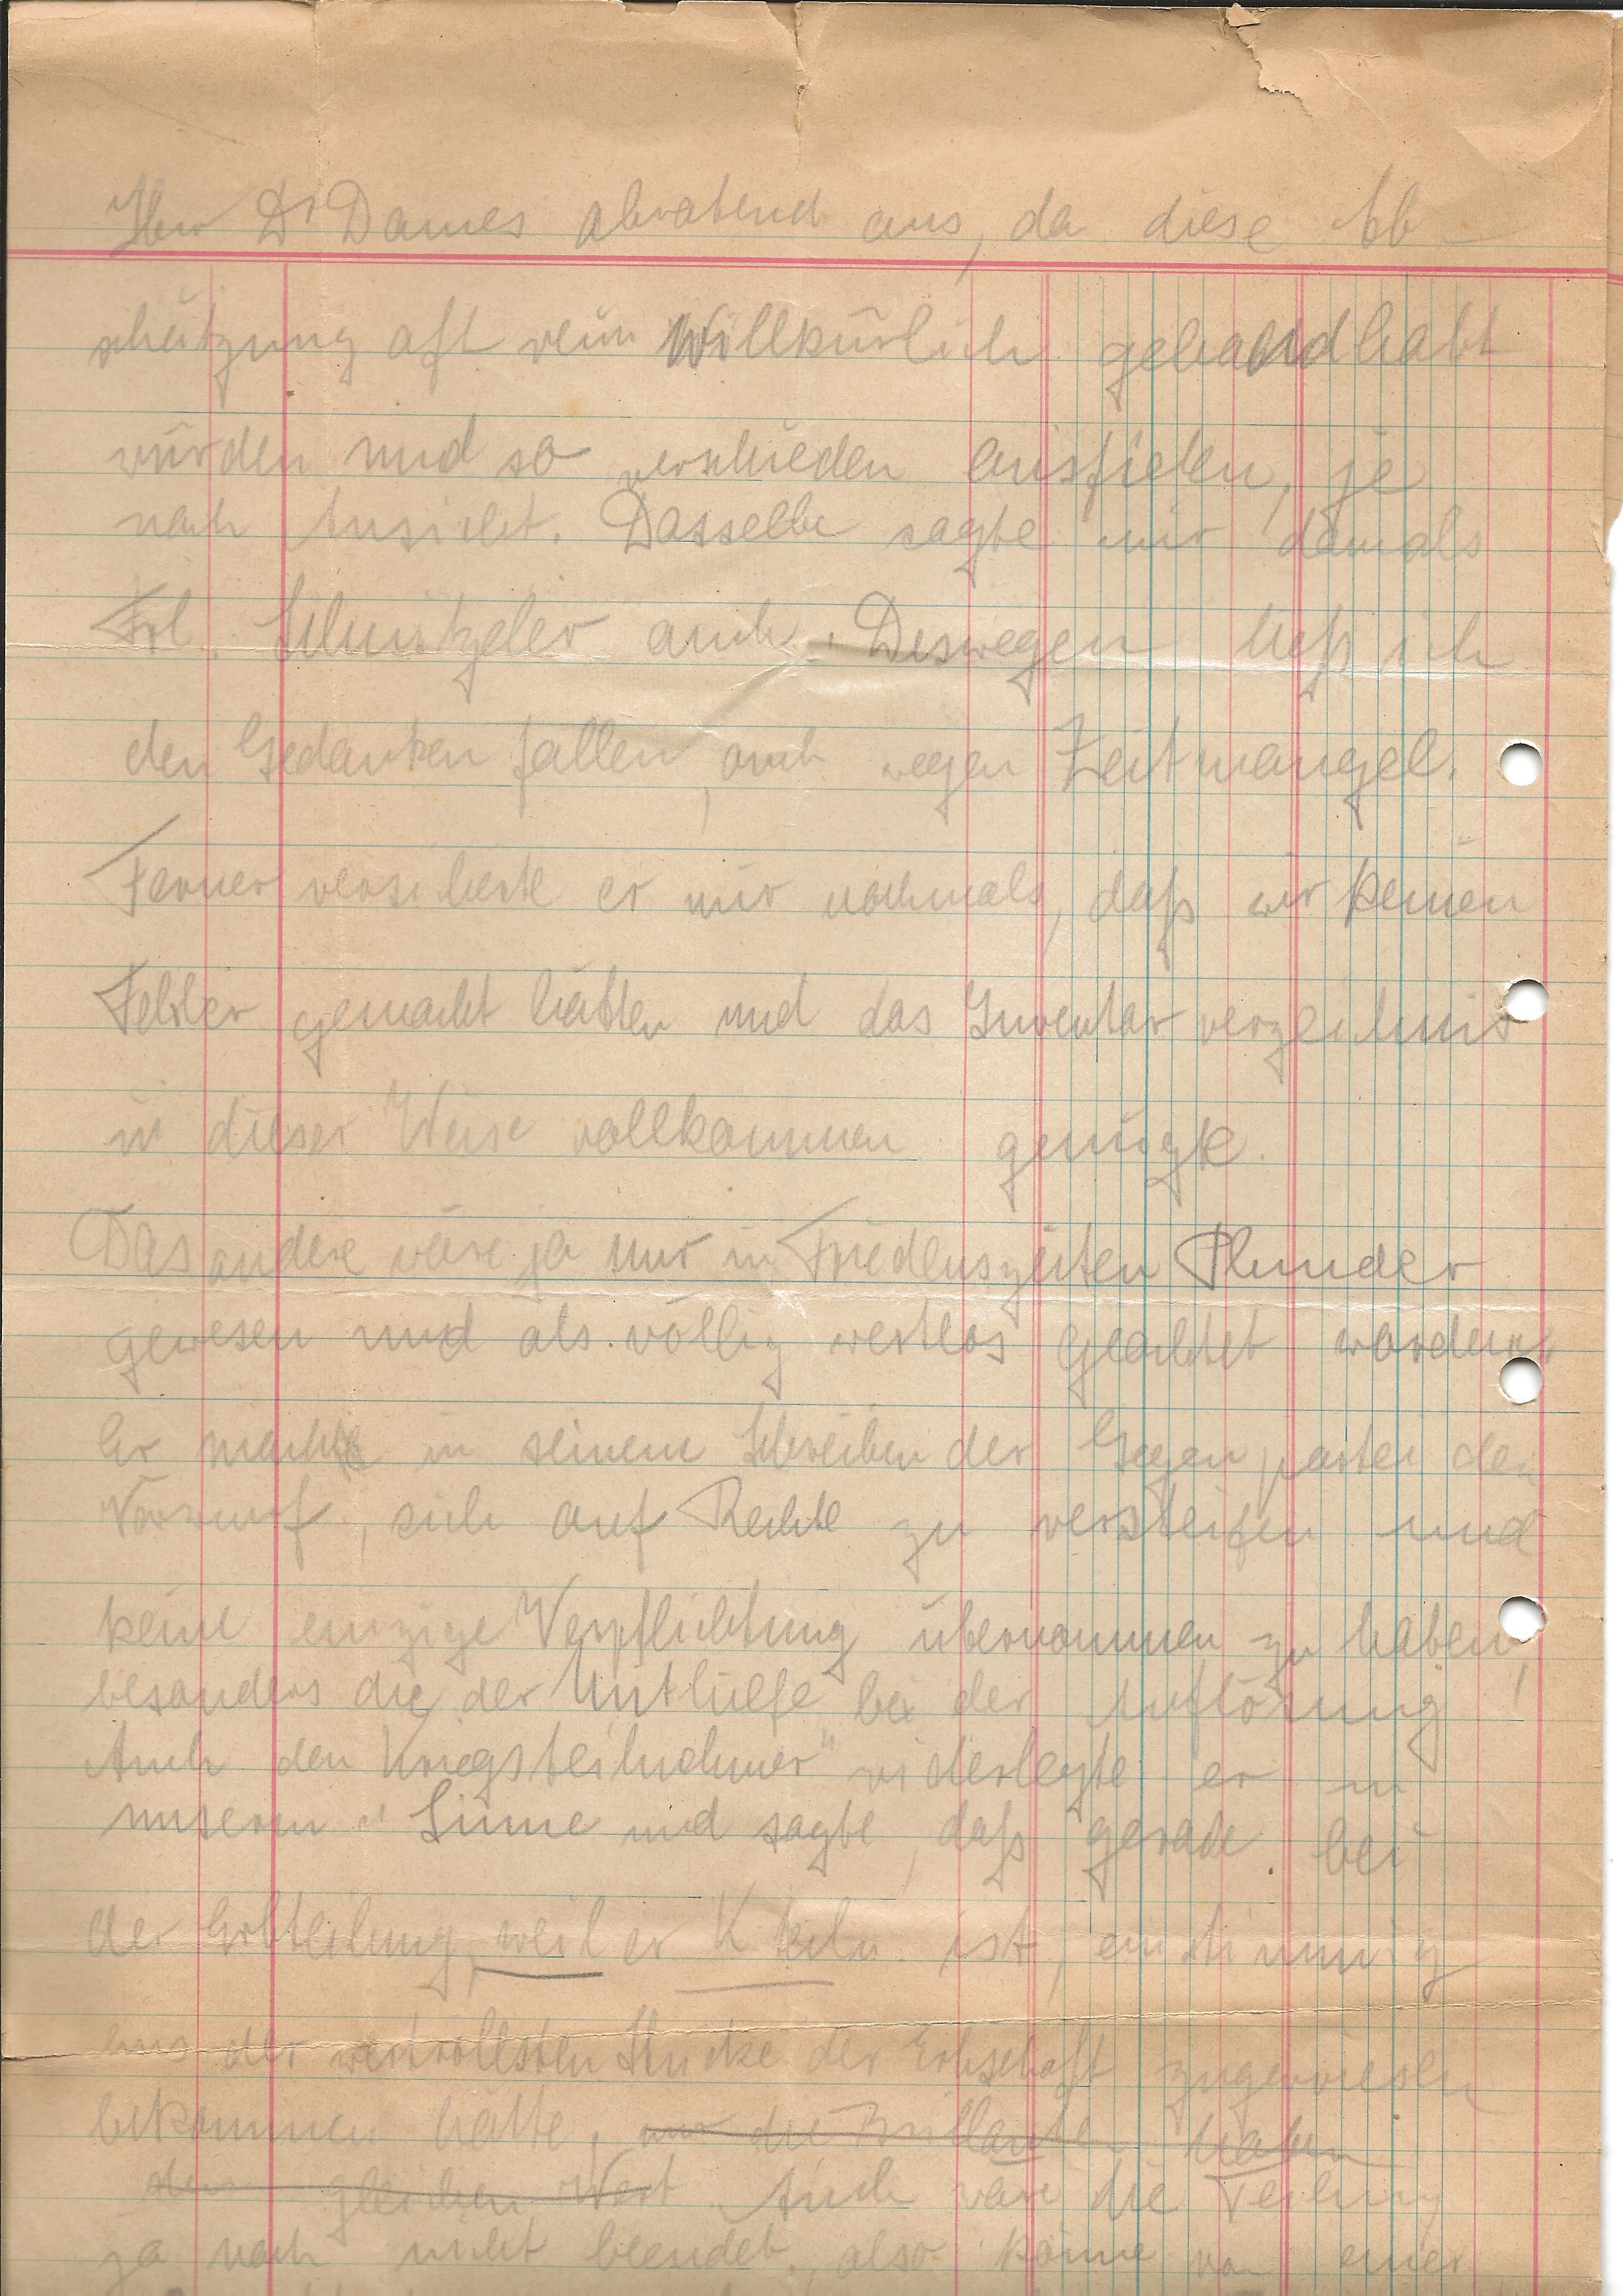 Herr Dr Dames abratend aus, da diese Ab
schätzung oft rein Willkürlich gehandhabt
würden und so verschieden ausfielen, je
nach Ansicht. Dasselbe sagte mir damals
Frl. Schnitzler auch. Deswegen ließ ich
den Gedanken fallen, auch wegen Zeitmangel.
Ferner versicherte er mir nochmals, daß wir keinen
Fehler gemacht hätten und das Inventarverzeichnis
in dieser Weise vollkommen genügte.
Das andere wäre ja nur in Friedenszeiten Plunder
gewesen und als völlig wertlos geachtet worden
Er machte in seinem Schreiben der Gegenpartei den
Vorwurf, sich auf Rechte zu versteifen und
keine einzige Verpflichtung übernommen zu haben,
besonders die der Mithilfe bei der Auflösung!
Auch den Kriegsteilnehmer" widerlegte er in
unserm Sinne und sagte, daß gerade bei
der Erbteilung, weil er ist, einstimmig
eins der wertvollsten Stücke der Erbschaft zugewiesen
bekommen hätte, nur die Brillanten haben
den gleichen Wert Auch wäre die Teilung
ja noch nicht beendet, also könne von einer